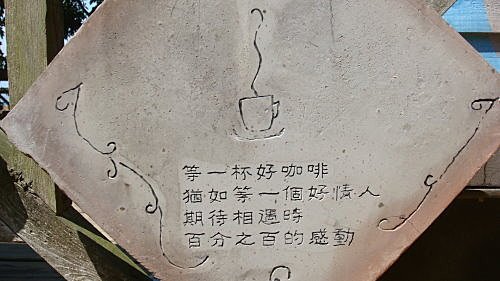 等一杯好咖啡
猶如等一個好情人
期待相遇時
百分之百的感動